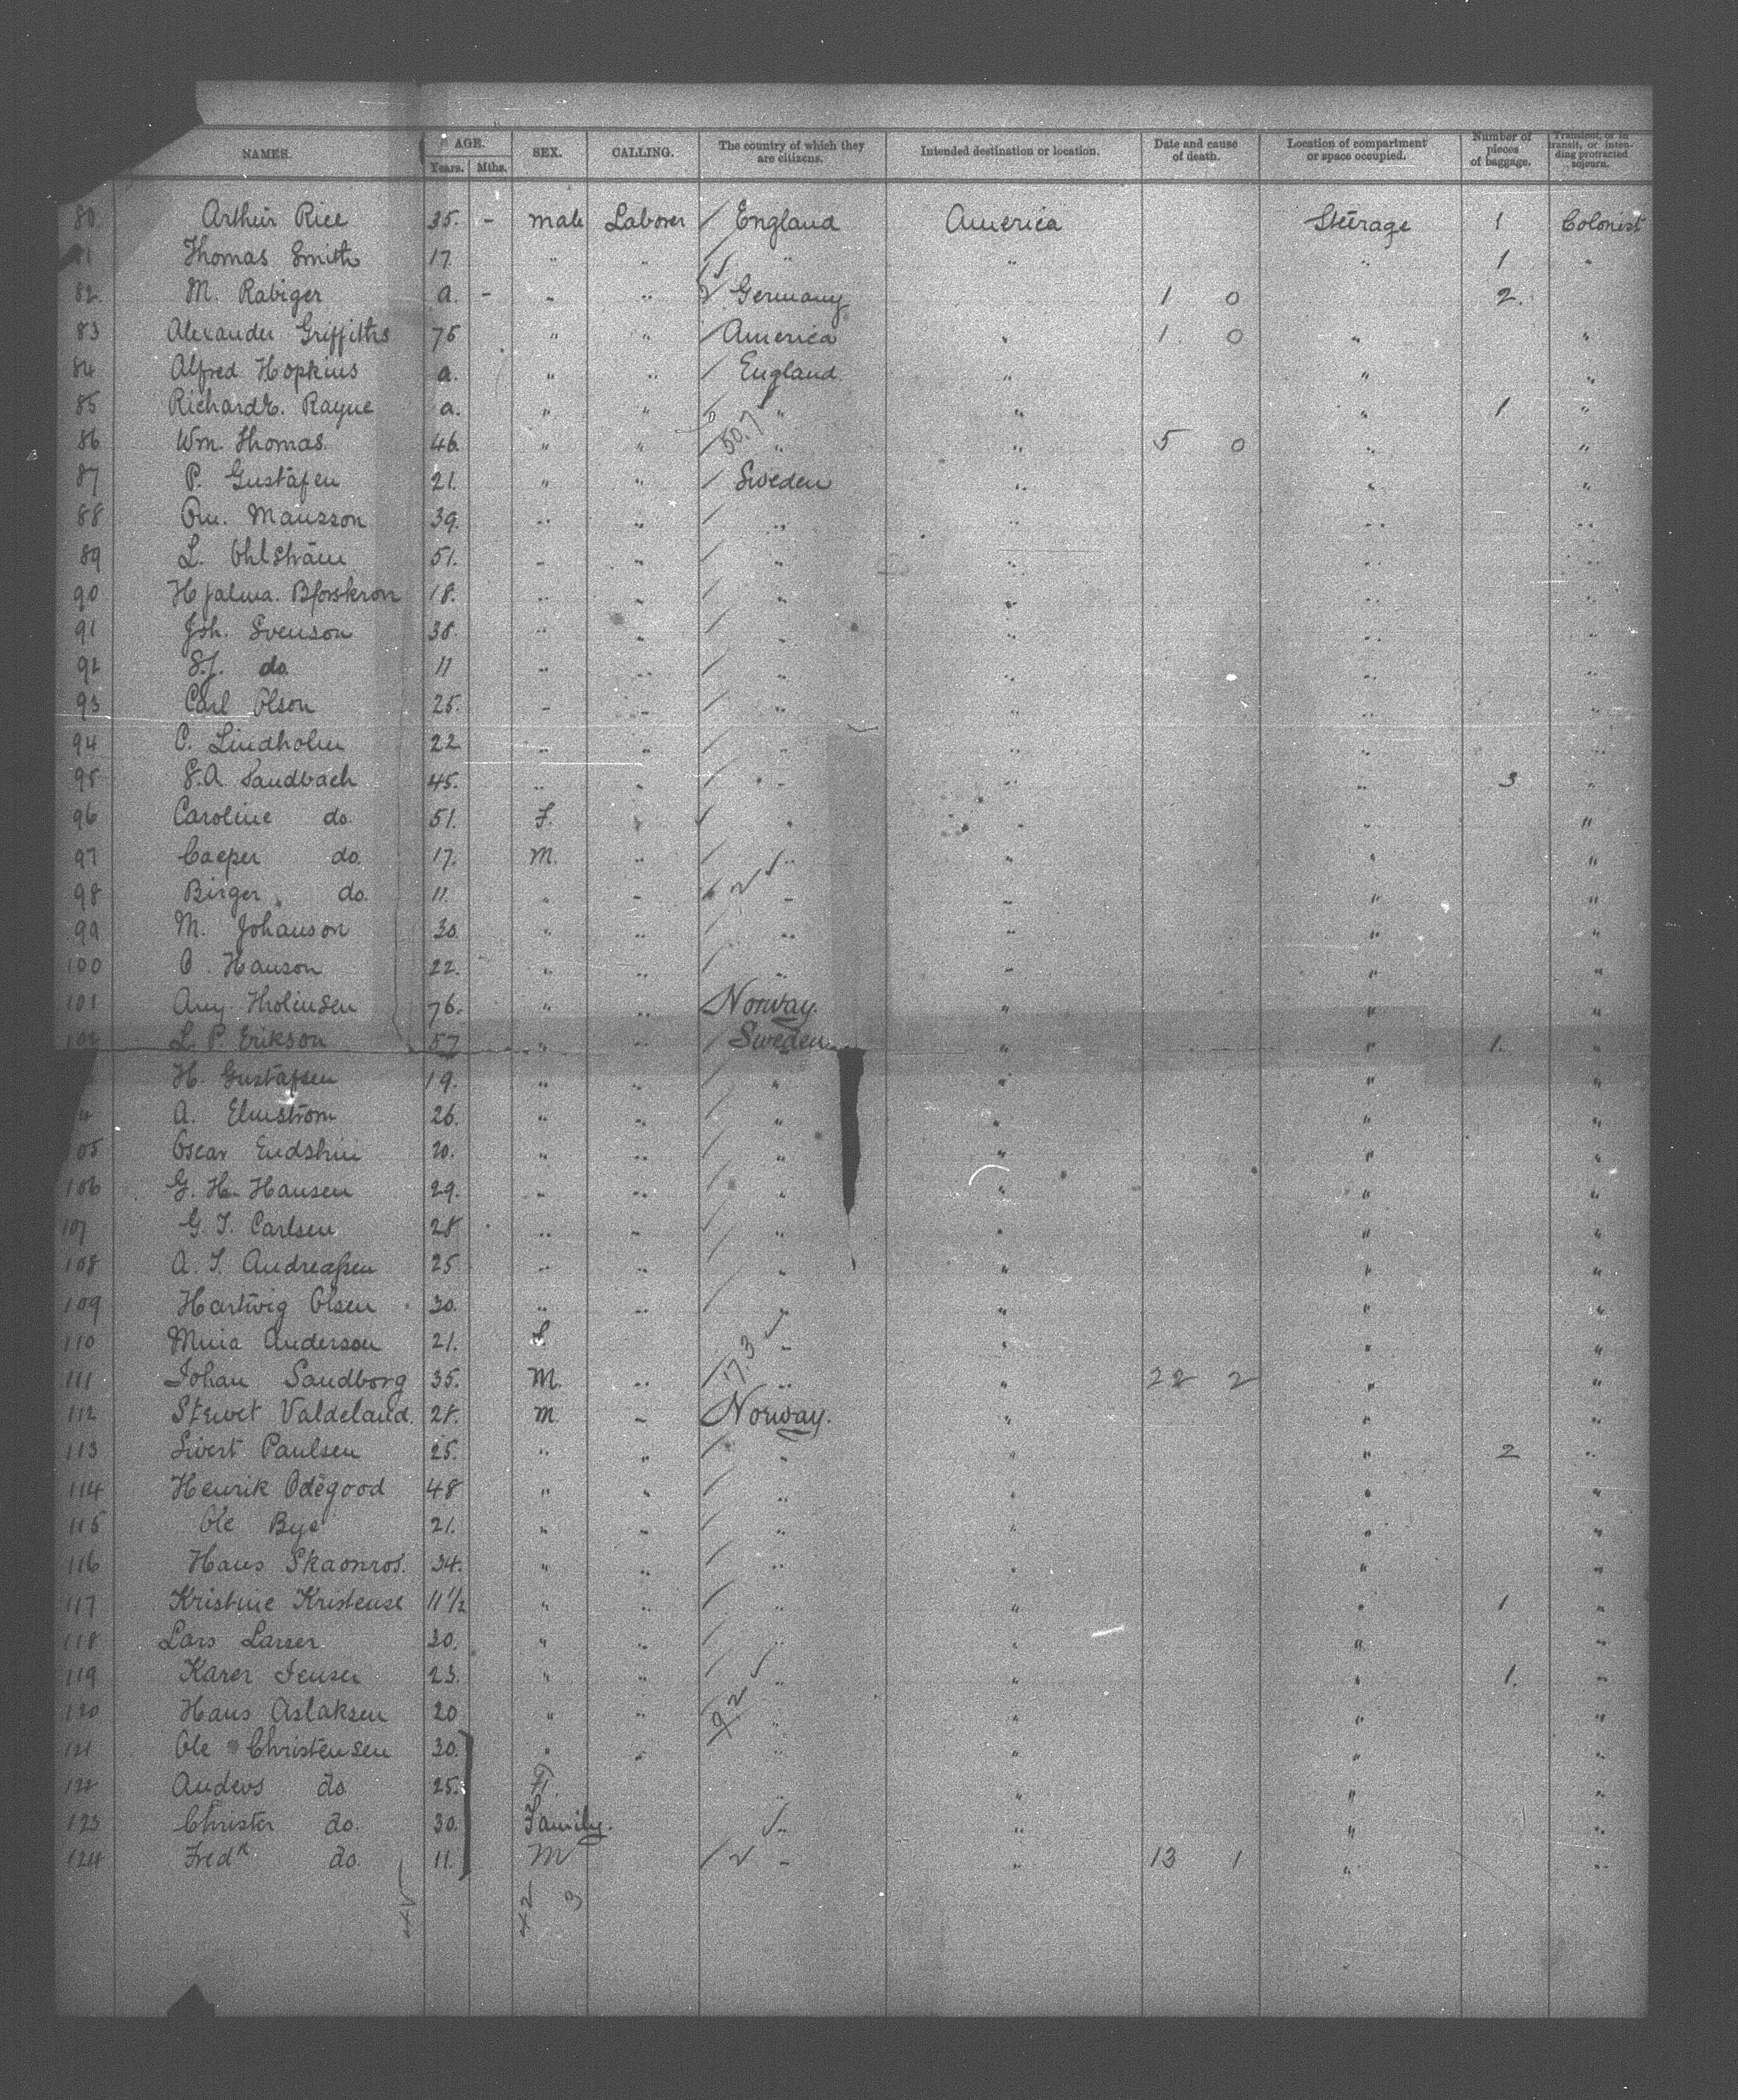 NAMES. AGE. Years. Mths. SEX. CALLING. The country of which they are citizens. Intended destination or location. Date and cause of death. Location of compartment or space occupied. Number of pieces of baggage. Transient, or in transit, or intending protracted sojourn.
80 Arthur Rice 35. - male Laborer / England America Steerage 1 Colonist
Thomas Smith 17 " " / " " " 1 "
82. M. Rabiger a. - " " Germany 1 0 2.
83 Alexander Griffiths 75 " " / America " 1. 0 " "
84 Alfred Hopkins a. " " / England " " "
85 Richard E. Rayne a. " " / " " " 1 "
86 Wm. Thomas. 46 " " / 50.7 " " 5 0 " "
87 P. Gustafen 21. " " / Sweden " " "
88 Mansson 39. " " / " " " "
89 L. Ohlström 51. " " / " " " "
90 Hjalma. 18. " " / " " " "
91 Joh. Svenson 38. " " / " " " "
92 S.J. do 11 " " / " " " "
93 Carl Olson 25. " " / " " " "
94 C. Lindholm 22 " " / " " " "
95 S.A Sandbach 45. " " / " " " 3 "
96 Caroline do. 51. F. " / " " " "
97 Casper do. 17. M. " / " " " "
98 Birger do. 11. " " " " " "
99 M. Johanson 30. " " / " " " "
100 O. Hanson 22. " " / " " " "
101 76. " " Norway. " " "
102 L. P. Erikson 57 " " / Sweden " " 1. "
H. Gustafsen 19. " " / " " " "
4 A. Elmström 26. " " / " " " "
05 Oscar 20. " " / " " " "
106 G. H. Hansen 29. " " / " " " "
107 G. T. Carlsen 28 " " / " " " "
108 A. T. Andreaſsen 25 " " / " " " "
109 Hartwig Olsen 30. " " / " " " "
110 Anderson 21. " " " "
111 Johan Sandborg 35. M. " / 17.3 " " 22 2 " "
112 Valdeland. 28. M. " Norway. " " "
113 Sivert Paulsen 25. " " / " " " 2 "
114 Henrik Odegood 48 " " / " " " "
115 Ole Bye 21. " " / " " " "
116 Hans 34. " " / " " " "
117 Kristine 11 1/2 " " / " " " 1 "
118 Lars Larser 30. " " / " " " "
119 Karer Jenser 23. " " / " " " 1. "
120 Hans Aslaksen 20 " " " " " "
121 Ole Christensen 30. " " " " " "
122 Anders do 25. " " " "
123 Christer do. 30. Family. " " " "
124 Fredk do. 11. M / " " 13 1 " "
42 3